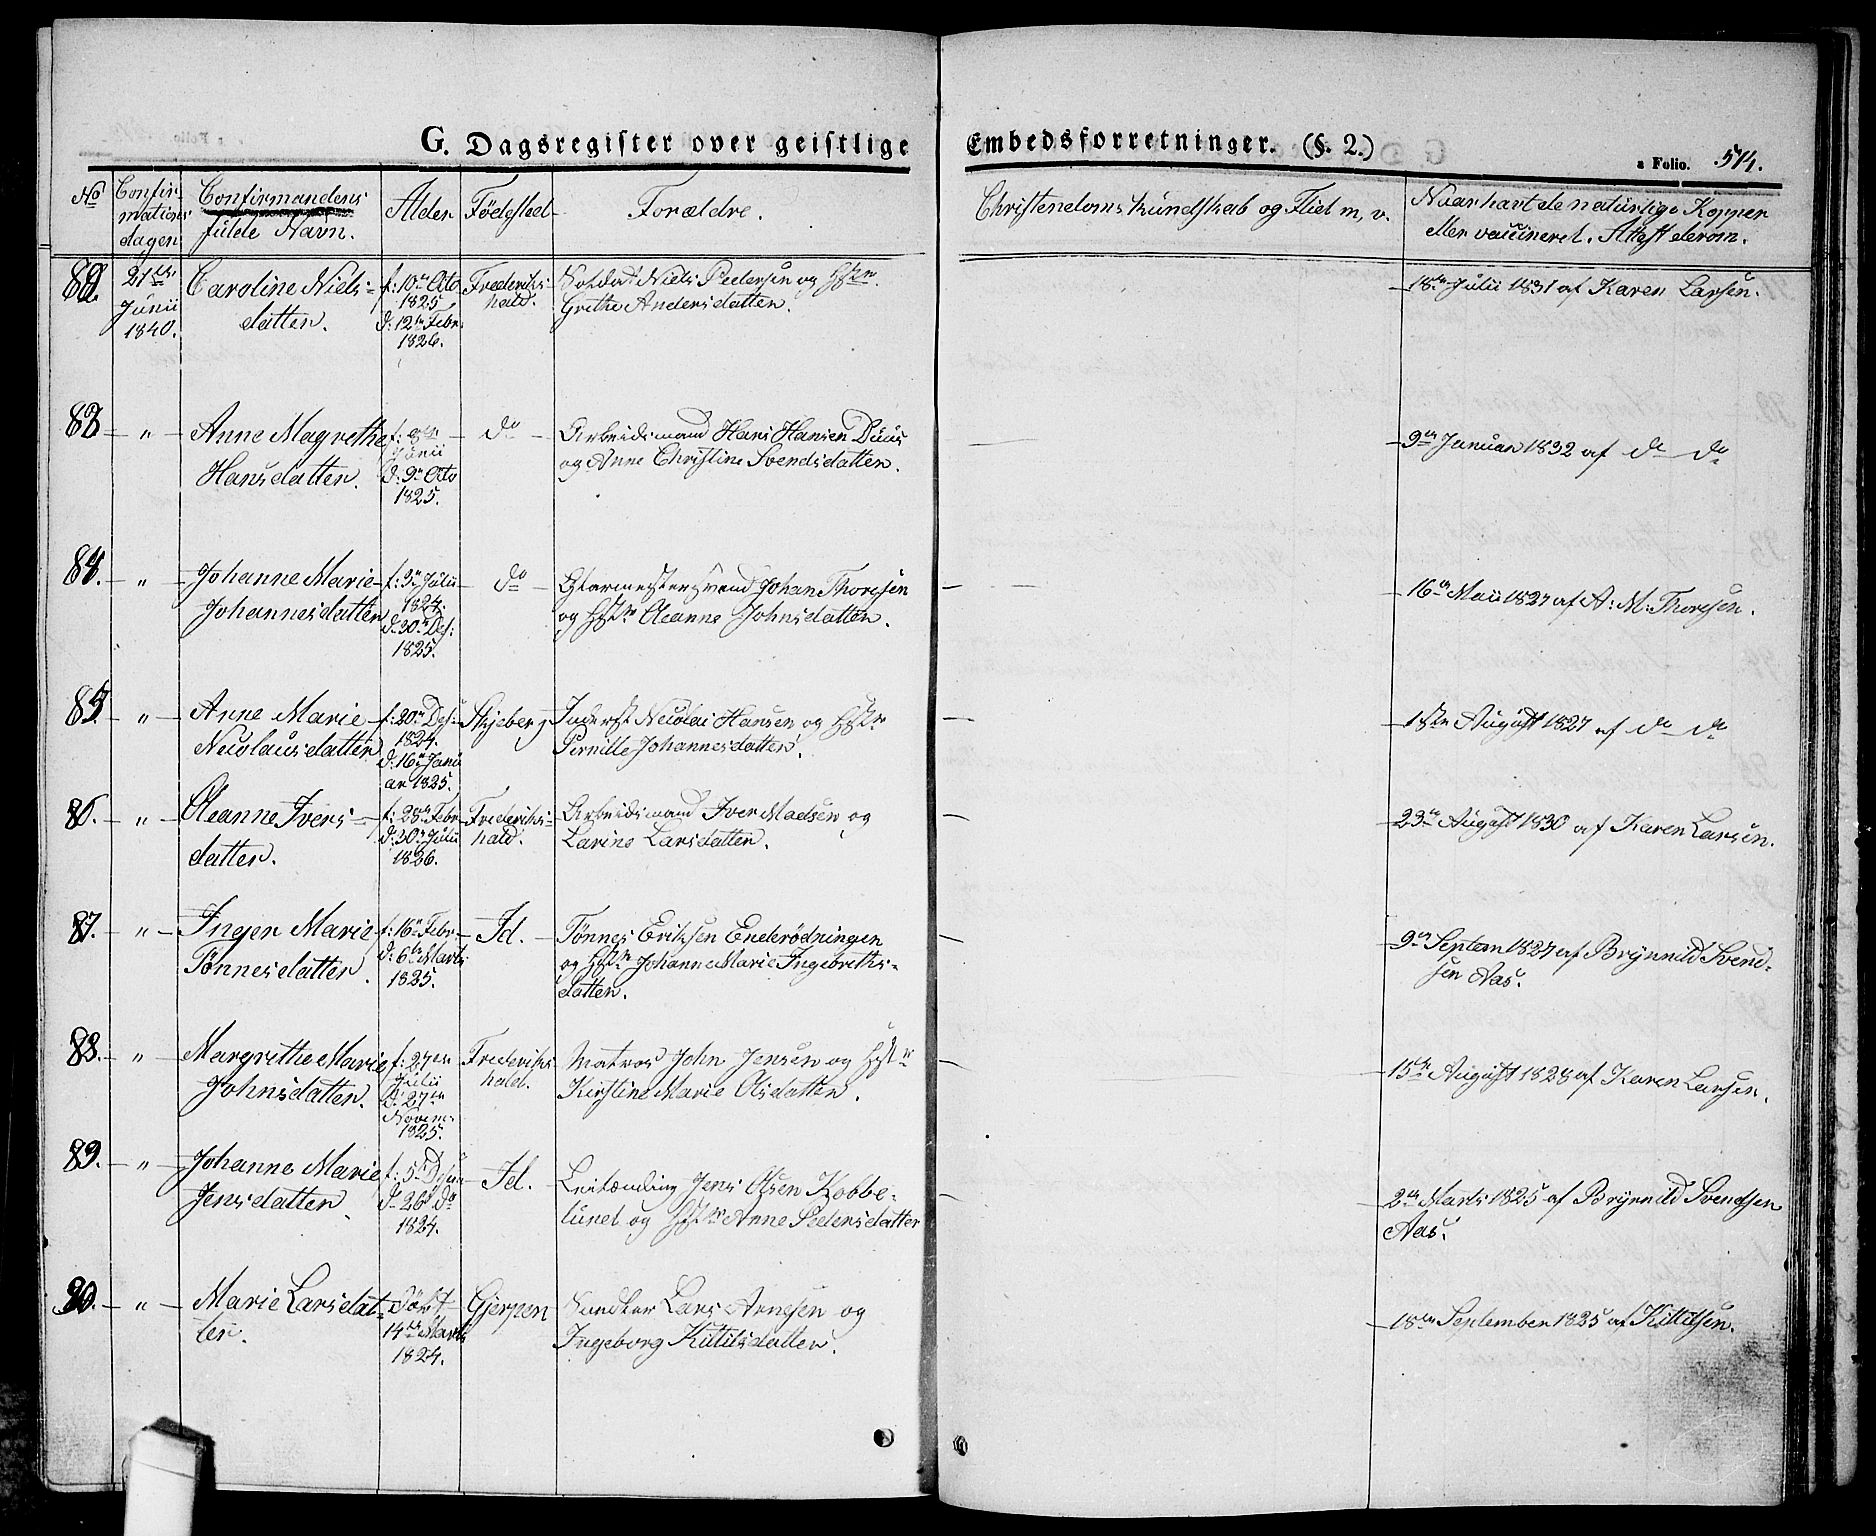 G. Dagsregister over geistlige Embedsforretninger. (§. 2.)
a Folio. 514.
No
Confir-
mations
dagen
Confirmandens
fulde Navn.
Alder
Fødested
Forældre.
Christendoms kundskab og Flid m, v.
Naar havt de naturlige Kopper
eller vaccineret. Attest derom.
82. 21de
Junii
1840.
Caroline Niels-
datten.
f: 10de Octo
1825
d: 12te Febr
1826.
Frederiks-
hald.
Soldat Niels Pedersen og Hstr.
Grethe Andersdatten.
18de Julii 1831 af Karen Larsen.
83 — " —
Anne Magrethe
Hansdatten.
f: 8de
Junii
d: 9de Octo
1825.
do
Arbeidsmand Hans Hansen Duus
og Anne Christine Svendsdatten.
9de Januar 1832 af do do
84. — " —
Johanne Marie
Johannesdatten
f: 3de Julii
1824.
d: 30te Des:
1825.
do
Glarmestersvend Johan Thoresen
og Hstr Oleanne Johnsdatten.
16de Maii 1827 af A: M: Thoresen.
85. — " —
Anne Marie
Nicolausdatten
f: 20de Des:
1824.
d: 16de Janu
ar 1825.
Skjeberg
Inderst Nicolai Hansen og Hstr
Pernille Johannesdatten.
1ste August 1827 af do do
86. — " —
Oleanne Ivers-
datten.
f: 28de Febr
d: 30te Julii
1826.
Frederiks-
hald.
Arbeidsmand Iver Madsen og
Larine Larsdatten.
23de August 1830 af Karen Larsen.
87. — " —
Ingen Marie
Tønnesdatten.
f: 16de Febr
d: 6te Marts
1825.
Id.
Tønnes Eriksen Enderødningen
og Hstr Johanne Marie Ingebreths-
datten.
9de Septem 1827 af Brynnild Svend-
sen Aas.
88. — " —
Margrethe Marie
Johnsdatten.
f: 27de
Julii
d: 27de
Novem
1825.
Frederiks
hald.
Matros John Jensen og Hstr
Kirstine Marie Olsdatten.
15de August 1828 af Karen Larsen.
89. — " —
Johanne Marie
Jensdatten.
f: 5te
d 26de do
1824.
Id.
Leilænding Jens Olsen Kobbe-
lund og Hstr Anne Pedersdatter
2den Marts 1825 af Brynnild Svendsen
Aas.
90. — " —
Marie Larsdat-
ter.
Døbt
14de Marts
1824.
Gjerpen
Snedker Lars Arnesen og
Ingeborg Kittilsdatten.
18de September 1825 af Kittilsen.